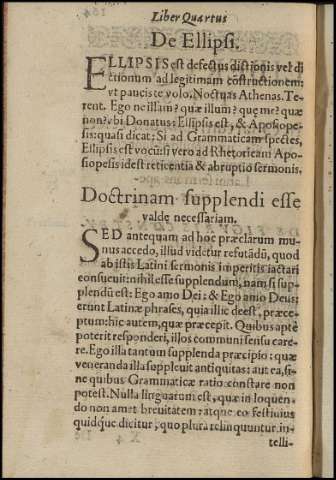 Liber Quartus
De Ellipsi.
ELLIPSIS est defectus dictionis vel di
ctionum ad legitimam cōstructionem:
vt paucis te volo. Noctuas Athenas. Te-
rent. Ego ne illam? quæ illum? quę me? quæ
non? vbi Donatus: Ellipsis est, & Aposiope-
sis: quasi dicat: Si ad Grammaticam spectes,
Ellipsis est vocū: si vero ad Rhetoricam Apo-
siopesis idest reticentia & abruptio sermonis.
Doctrinam supplendi esse
valde necessariam.
SED antequam ad hoc præclarum mu-
nus accedo, illud videtur refutādū, quod
ab istis Latini sermonis imperitis iactari
consueuit: nihil esse supplendum, nam si sup-
plendū est: Ego amo Dei: & Ego amo Deus;
erunt Latinæ phrases, quia illic deest, præce-
ptum: hic autem, quæ præcepit. Quibus aptè
poterit responderi, illos communi sensu care-
re. Ego illa tantum supplenda præcipio: quæ
veneranda illa suppleuit antiquitas: aut ea, si-
ne quibus Grammaticæ ratio constare non
potest. Nulla linguarum est, quæ in loquen-
do non amet breuitatem: atque eo festiuius
quidque dicitur, quo plura relinquuntur in-
telli-